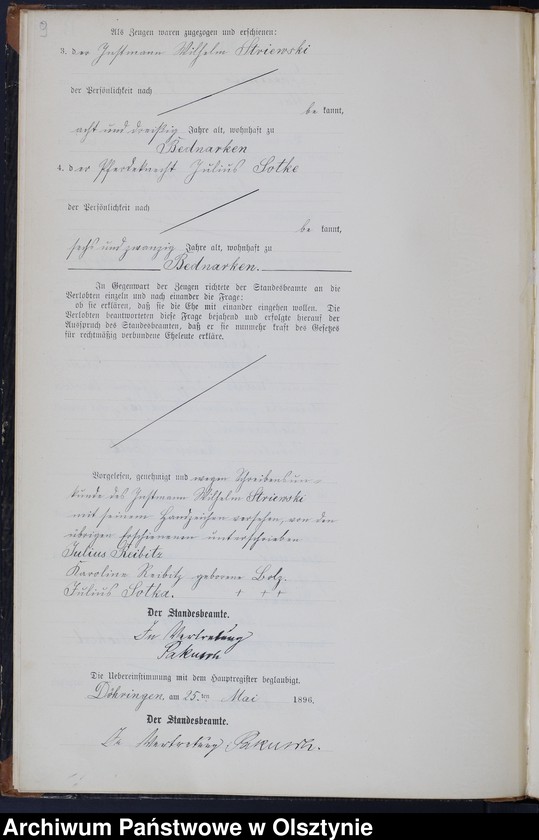 9
Als Zeugen waren zugezogen und erschienen:
3. der Instmann Wilhelm Striewski
der Persönlichkeit nach
be kannt,
acht und dreißig Jahre alt, wohnhaft zu
Bednarken
4. der Pferdeknecht Julius Sotke
der Persönlichkeit nach
be kannt,
sechs und zwanzig Jahre alt, wohnhaft zu
Bednarken.
In Gegenwart der Zeugen richtete der Standesbeamte an die
Verlobten einzeln und nach einander die Frage:
ob sie erklären, daß sie die Ehe mit einander eingehen wollen. Die
Verlobten beantworteten diese Frage bejahend und erfolgte hierauf der
Ausspruch des Standesbeamten, daß er sie nunmehr kraft des Gesetzes
für rechtmäßig verbundene Eheleute erkläre.
Vorgelesen, genehmigt und wegen Schreibensun-
kunde des Instmann Wilhelm Striewski
mit seinem Handzeichen versehen, von den
übrigen Erschienenen unterschrieben
Julius Reibitz
Karoline Reibitz geborene Bolz.
Julius Sotka. + + +
Der Standesbeamte.
In Vertretung
Pakusch
Die Uebereinstimmung mit dem Hauptregister beglaubigt.
Döhringen, am 25.ten Mai 1896.
Der Standesbeamte.
In Vertretung Pakusch.
Archiwum Państwowe w Olsztynie